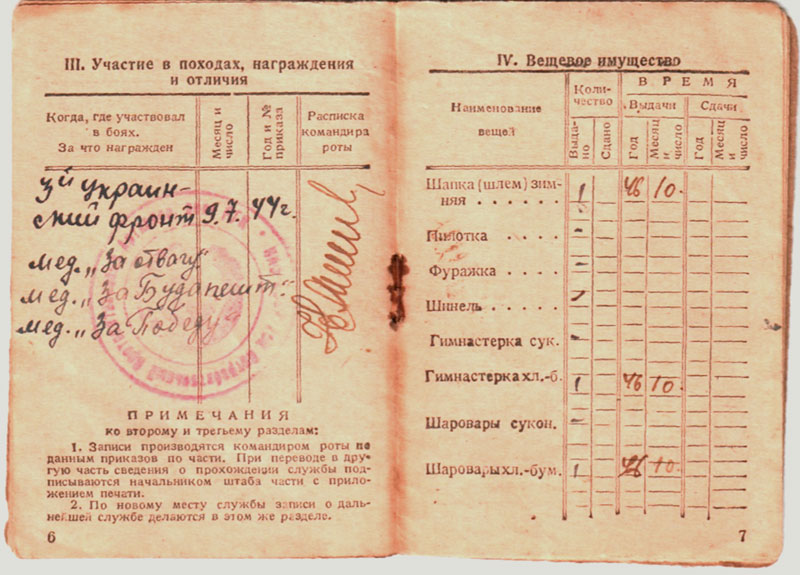 III. Участие в походах, награждения
и отличия
Когда, где участвовал
в боях.
За что награжден
Месяц и
число
Год и №
приказа
Расписка
командира
роты
3й украин-
ский фронт 9.7. 44г.
мед. „За отвагу"
мед. „За Будапешт"
мед. „За Победу"
ПРИМЕЧАНИЯ
ко второму и третьему разделам:
1. Записи производятся командиром роты по
данным приказов по части. При переводе в дру-
гую часть сведения о прохождении службы под-
писываются начальником штаба части с прило-
жением печати.
2. По новому месту службы записи о даль-
нейшей службе делаются в этом же разделе.
6
IV. Вещевое имущество
Наименование
вещей
Коли-
чество
ВРЕМЯ
Выдачи
Сдачи
Выда-
но
Сдано
Год
Месяц
и
число
Год
Месяц
и
число
Шапка (шлем) зим-
няя . . . . . . 1 46 10.
Пилотка
Фуражка . . . .
Шинель . . . .
Гимнастерка сук.
Гимнастерка хл.-б. 1 46 10.
Шаровары сукон.
Шаровары хл.-бум. 1 46 10.
7